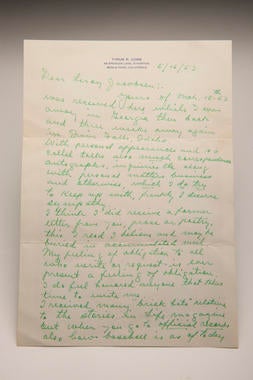 TYRUS R. COBB
MENLO PARK, CALIFORNIA
5/16/53
Dear Leroy Jacobsen:-
Yours of Mar. 18-53
was received here while I was
away in Georgia then back
and three weeks away again
in Twin Falls, Idaho.
With personal appearances and so
called talks also much correspondence
autographs, in pencil etc along
with personal matters business
and otherwise, which I do try
to keep up with, surely I deserve
sympathy.
I think I did receive a former
letter from you, prose or poetry,
this I read I believe and may be
buried in accumulated mail.
My feeling of obligation to all
who write or request is ever
present a feeling of obligation.
I do feel honored anyone that takes
time to write me.
I received many brick bats relative
to the stories in Life magazine
but when you go to official records
also how baseball is as of today